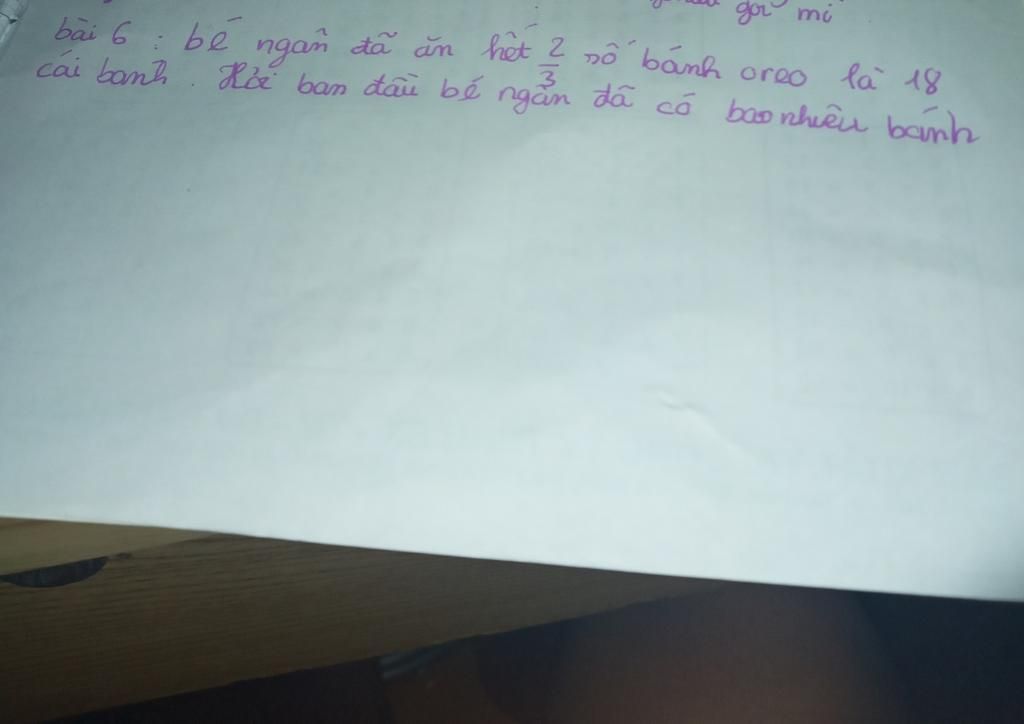 gói mì
bài 6 : bé ngân đã ăn hết 2/3 số bánh oreo là 18
cái banh. Hỏi ban đầu bé ngân đã có bao nhiêu bánh